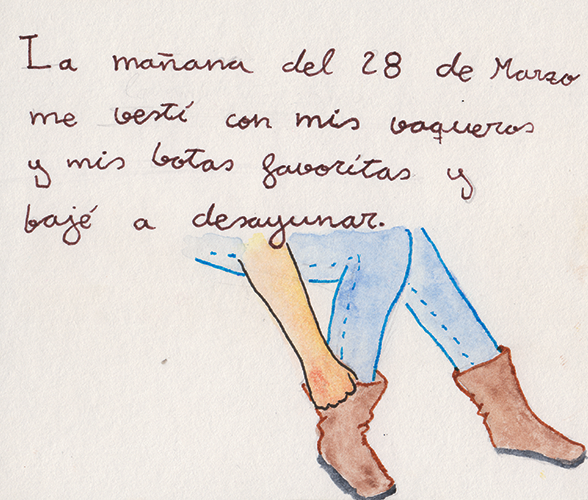 La mañana del 28 de Marzo
me vestí con mis vaqueros
y mis botas favoritas y
bajé a desayunar.